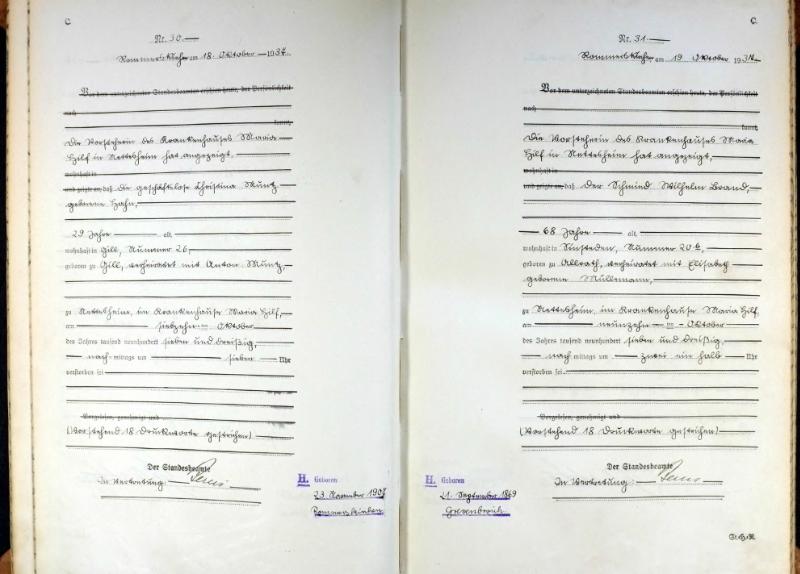 C
Nr. 30.
Rommerskirchen am 18. Oktober 1937
Vor dem unterzeichneten Standesbeamten erschien heute, der Persönlichkeit
nach
kannt,
Die Vorsteherin des Krankenhauses Maria
Hilf in Nettesheim hat angezeigt,
wohnhaft in
und zeigte an, daß die geschäftslose Christina Muntz
geborene Hahn,
29 Jahre alt,
wohnhaft in Gill, Nummer 26,
geboren zu Gill, verheiratet mit Anton Muntz,
zu Nettesheim, im Krankenhause Maria Hilf,
am siebzehn ten Oktober
des Jahres tausend neunhundert sieben und dreißig,
nach mittags um sieben Uhr
verstorben sei
Vorgelesen, genehmigt und
(Vorstehend 18 Druckworte gestrichen)
Der Standesbeamte
In Vertretung:
H. Geboren
23. November 1907
C.
Nr. 31.
Rommerskirchen am 19 Oktober 1937
Vor dem unterzeichneten Standesbeamten erschien heute, der Persönlichkeit
nach
kannt,
Die Vorsteherin des Krankenhauses Maria
Hilf in Nettesheim hat angezeigt,
wohnhaft in
und zeigte an, daß Der Schmied Wilhelm Brand,
68 Jahre alt,
wohnhaft in Sinsteden, Nummer 20 b,
geboren zu Allrath, verheiratet mit Elisabeth
geborene Müllemann,
zu Nettesheim im Krankenhause Maria Hilf,
am neunzehn ten Oktober
des Jahres tausend neunhundert sieben und dreißig,
nach mittags um zwei ein halb Uhr
verstorben sei
Vorgelesen, genehmigt und
(Vorstehend 18 Druckworte gestrichen)
Der Standesbeamte
In Vertretung:
H. Geboren
21. September 1869
Grevenbroich